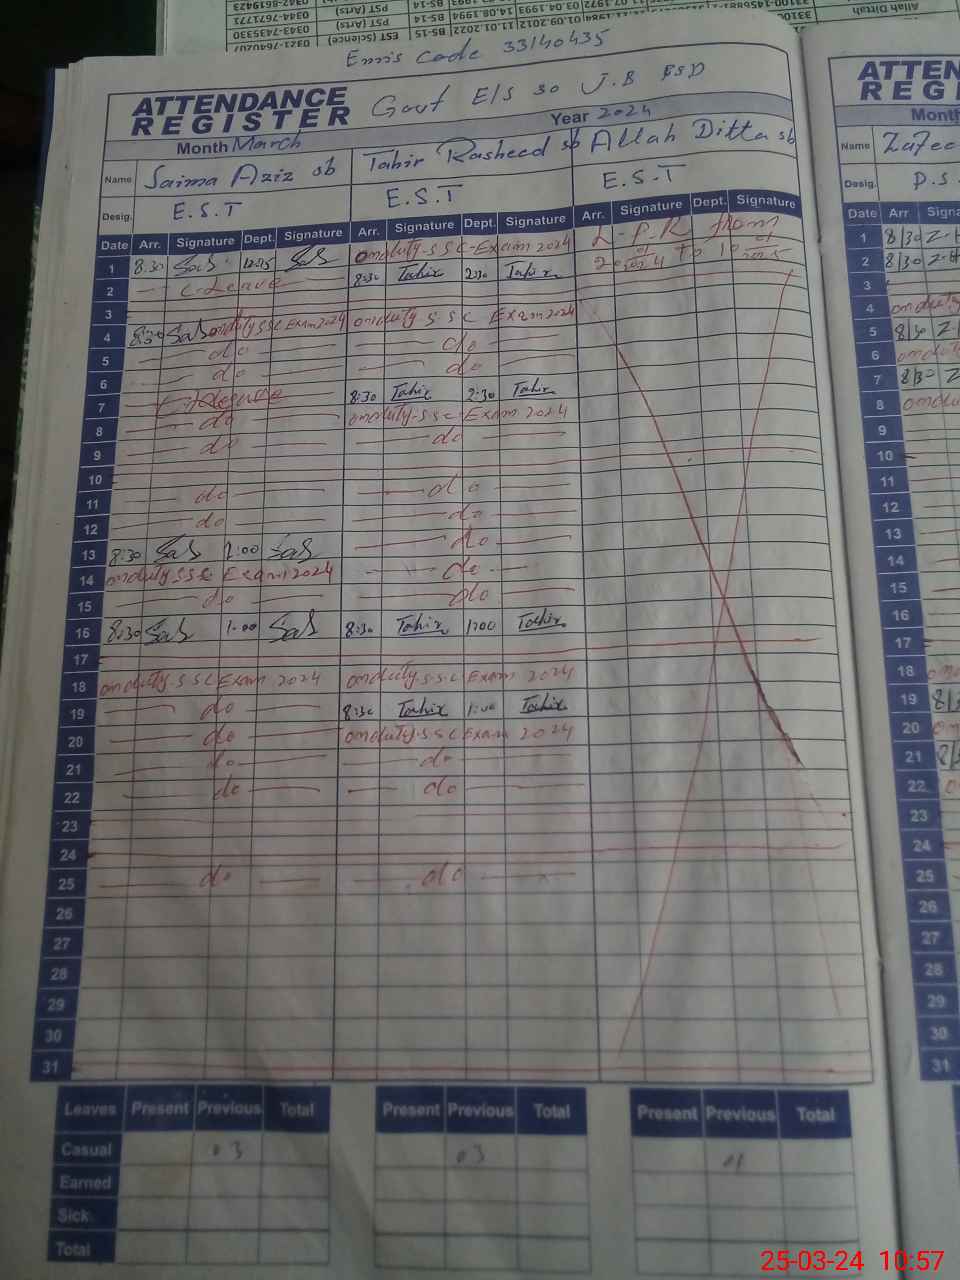 Emis code 33140435
ATTENDANCE REGISTER
Govt E/S 30 J.B FSD
Month March
Year 2024
Name Saima Aziz sb Tahir Rasheed sb Allah Ditta sb
Desig. E.S.T E.S.T E.S.T
Date Arr. Signature Dept. Signature Arr. Signature Dept. Signature Arr. Signature Dept. Signature
1 8:30 SaS 12:15 SaS onduty-SSC-Exam 2024 L-P-R from
2 C-Leave 8:30 Tahir 2:30 Tahir
3
4 8:30 SaS onduty SSC Exam 2024 onduty SSC Exam 2024
5 do do
6 do do
7 8:30 Tahir 2:30 Tahir
8 do onduty-SSC-Exam 2024
9 do do
10
11 do do
12 do do
13 8:30 SaS 1:00 SaS do
14 onduty SSC Exam 2024 do
15 do do
16 8:30 SaS 1:00 SaS 8:30 Tahir 1:00 Tahir
17
18 onduty SSC Exam 2024 onduty SSC Exam 2024
19 do 8:30 Tahir 1:00 Tahir
20 do onduty-SSC Exam 2024
21 do do
22 do do
23
24
25 do do
26
27
28
29
30
31
Leaves Present Previous Total Present Previous Total Present Previous Total
Casual 03 03 01
Earned
Sick
Total
ATTEN
REGI
Month
Name Zafee
Desig. P.S.
Date Arr. Signa
1 8/30 Z-H
2 8/30 Z-H
3
4 onduty
5 8/30 Z-
6 onduty
7 8/30 Z
8 onduty
9
10
11
12
13
14
15
16
17
18
19
20
21
22
23
24
25
26
27
28
29
30
31
25-03-24 10:57